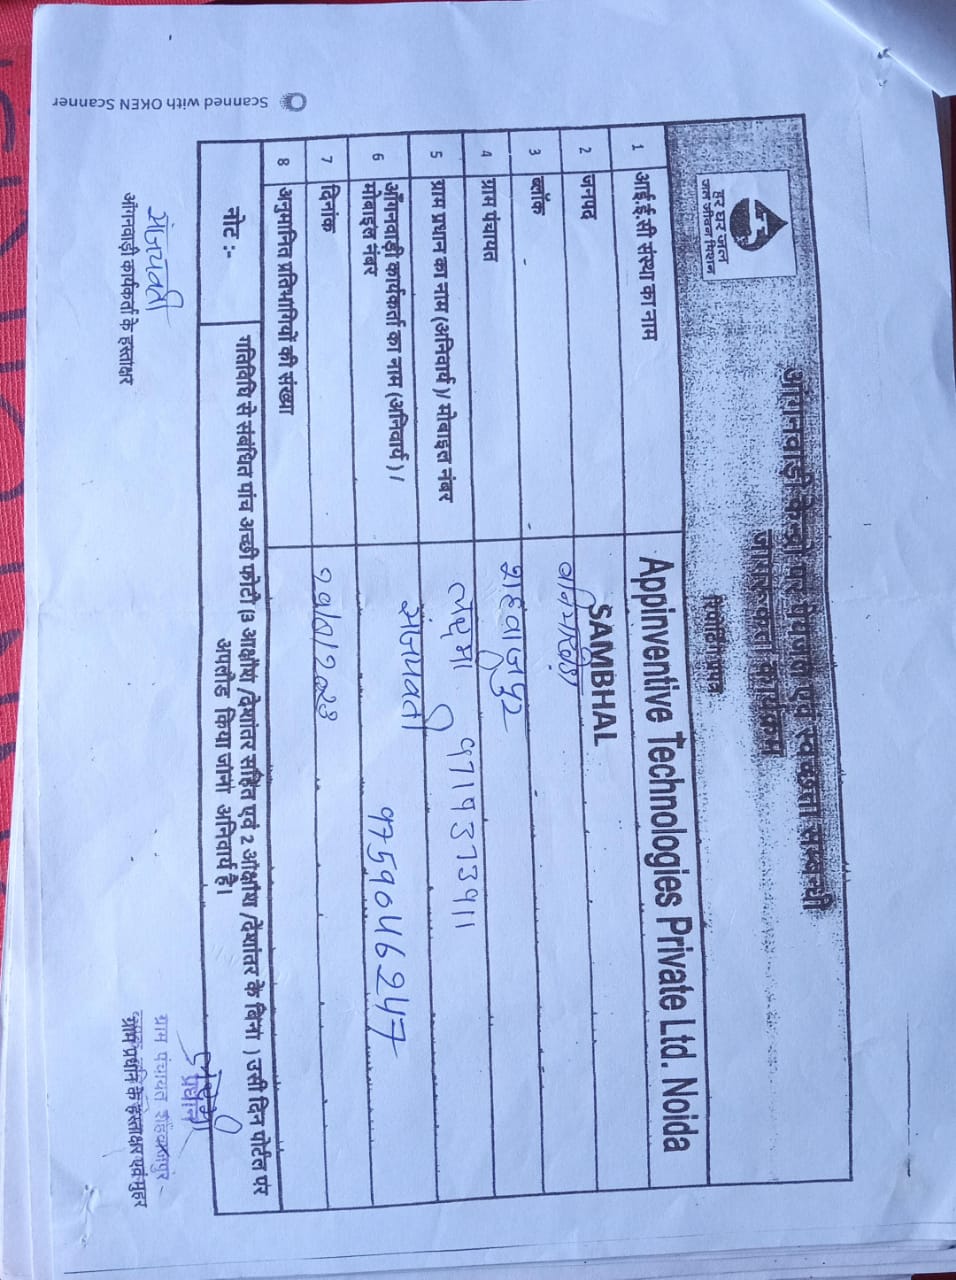 हर घर जल
जल जीवन मिशन
आंगनवाड़ी केन्द्रो पर पेयजल एवं स्वच्छता सम्बन्धी
जागरूकता कार्यक्रम
रिपोर्टिंग प्रपत्र
1 आई.ई.सी संस्था का नाम Appinventive Technologies Private Ltd. Noida
2 जनपद SAMBHAL
3 ब्लॉक
4 ग्राम पंचायत शहवाजपुर
5 ग्राम प्रधान का नाम (अनिवार्य )/ मोबाइल नंबर
6 आँगनवाड़ी कार्यकर्ता का नाम (अनिवार्य ) / मोबाइल नंबर 9759046247
7 दिनांक
8 अनुमानित प्रतिभागियों की संख्या
नोट :- गतिविधि से संबंधित पांच अच्छी फोटो (3 आक्षांष /देशांतर सहित एवं 2 आंक्षांष /देशांतर के बिना ) उसी दिन पोर्टल पर
अपलोड किया जाना अनिवार्य है।
आंगनवाड़ी कार्यकर्ता के हस्ताक्षर
प्रधान
ग्राम पंचायत शहवाजपुर
ग्राम प्रधान के हस्ताक्षर एवं मुहर
Scanned with OKEN Scanner